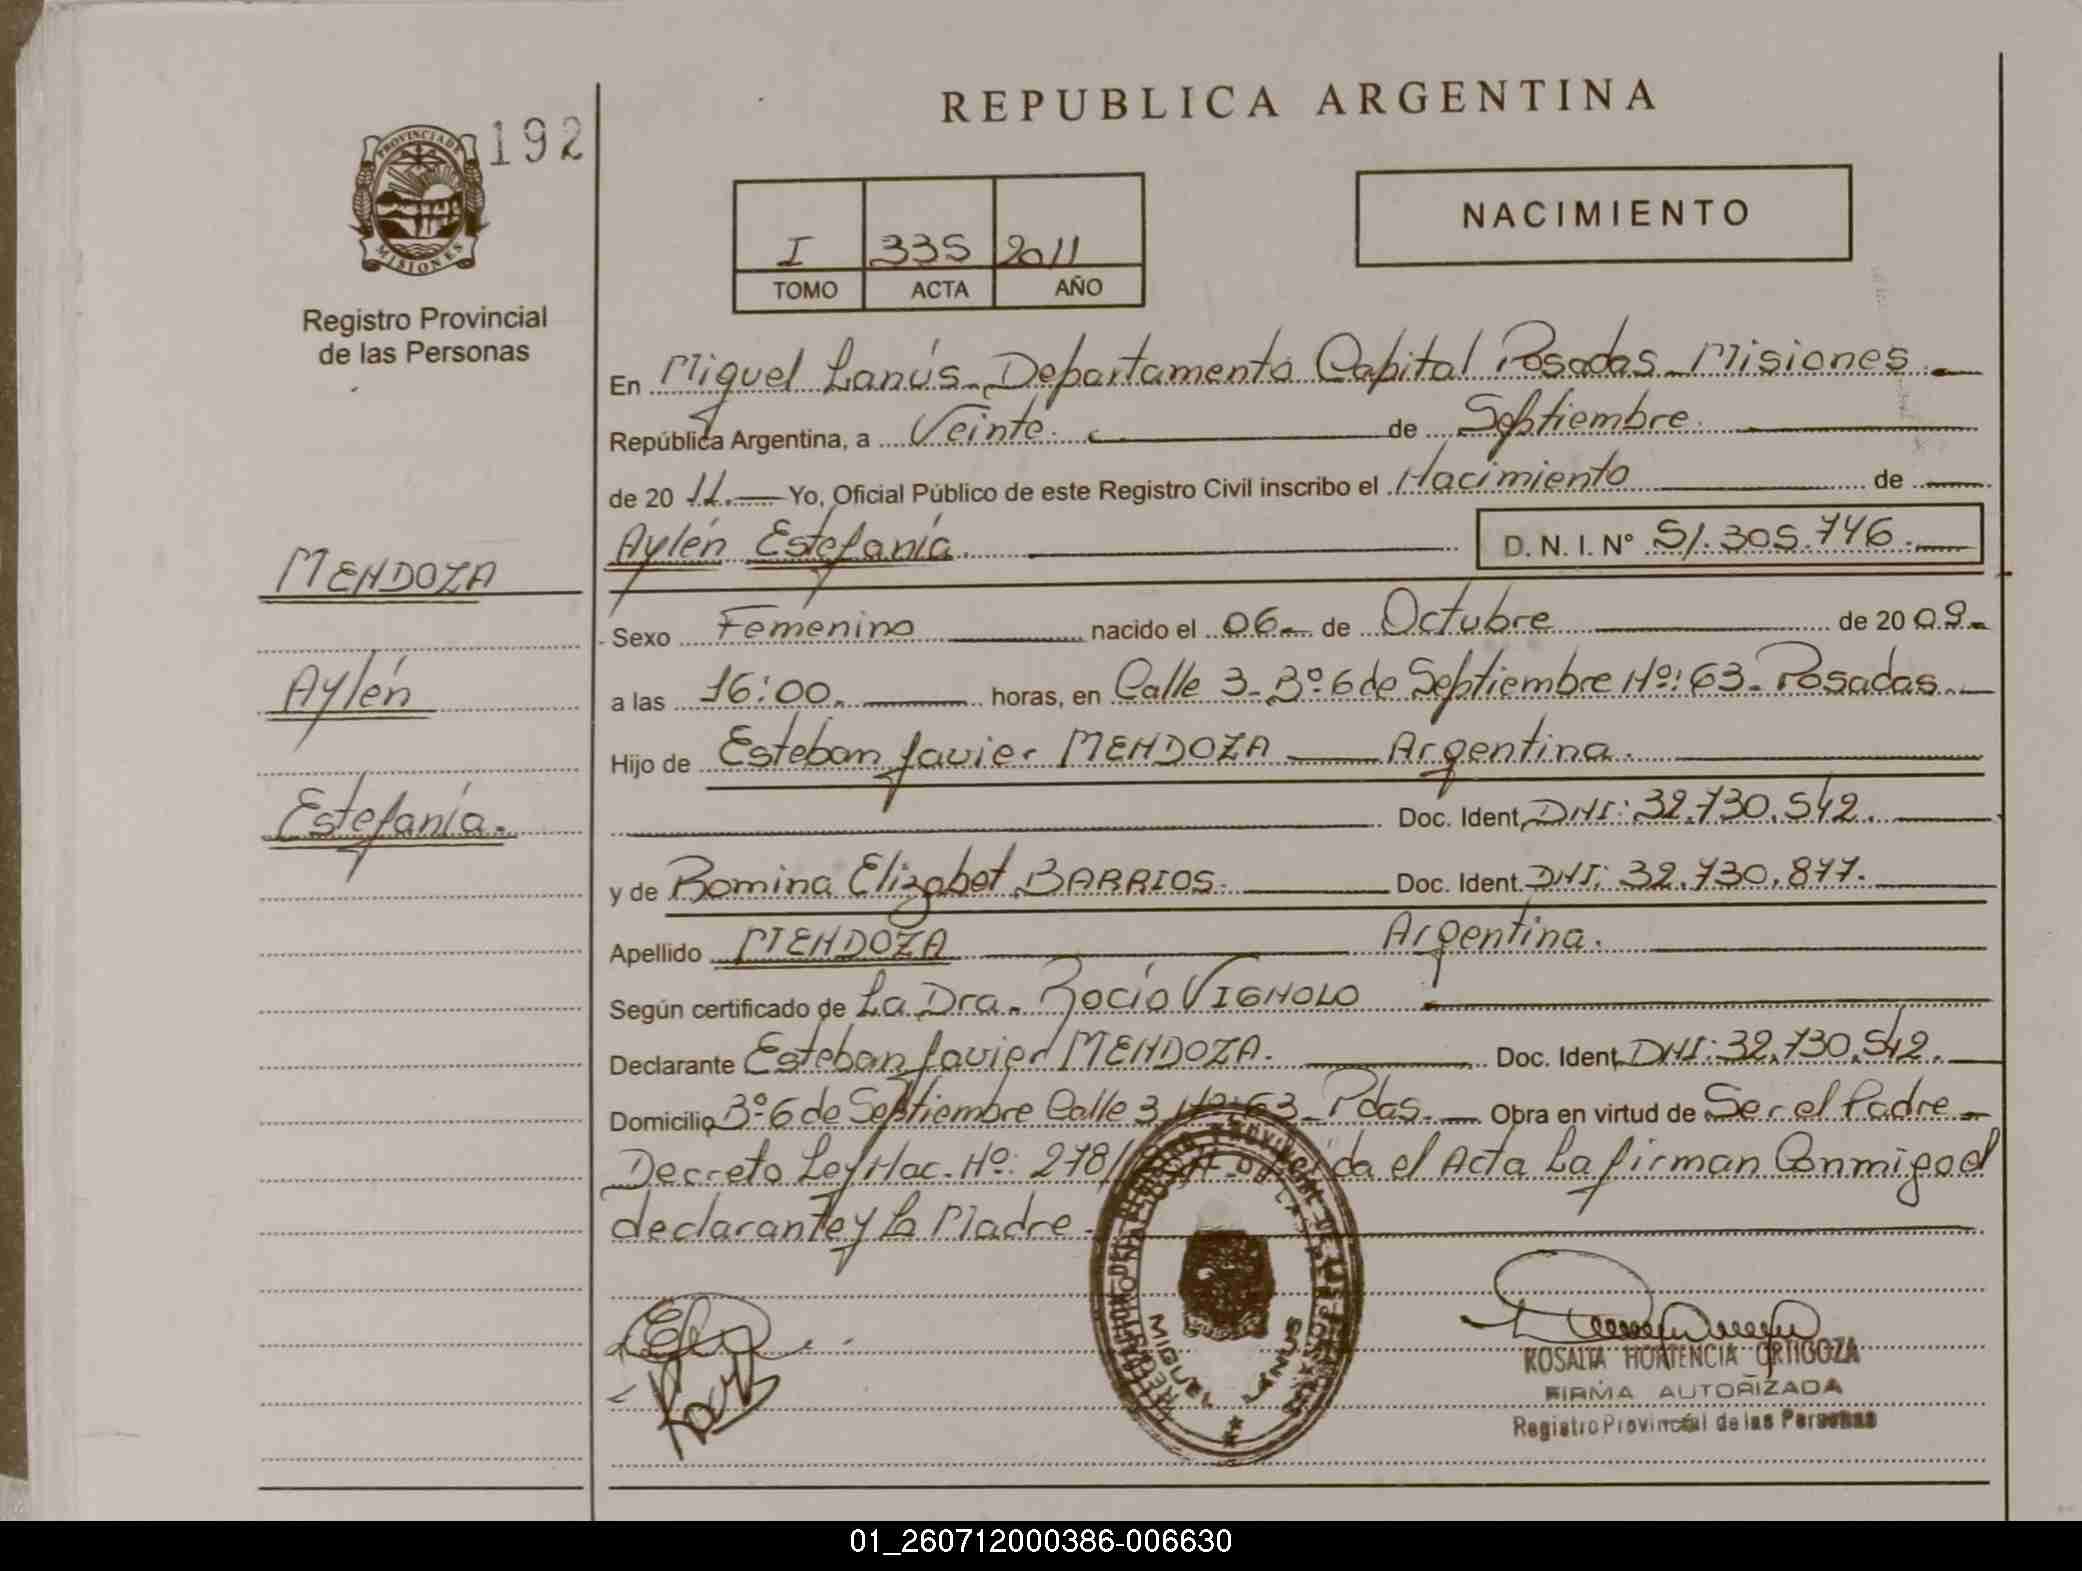 REPUBLICA ARGENTINA
PROVINCIA DE
MISIONES
192
Registro Provincial
de las Personas
I 335 2011
TOMO ACTA AÑO
NACIMIENTO
En Miguel Lanús - Departamento Capital Posadas - Misiones.
República Argentina, a Veinte. de Septiembre.
de 20 11. Yo, Oficial Público de este Registro Civil inscribo el Nacimiento de
Aylén Estefanía. D. N. I. Nº S/. 305.746.
MENDOZA
Aylén
Estefanía.
Sexo Femenino nacido el 06 - de Octubre de 20 09.
a las 16:00. horas, en Calle 3 - Bº 6 de Septiembre Nº: 63 - Posadas.
Hijo de Esteban Javier MENDOZA Argentina.
Doc. Ident. DNI: 32.730.542.
y de Romina Elizabet BARRIOS. Doc. Ident. DNI: 32.730.877.
Apellido MENDOZA Argentina.
Según certificado de La Dra. Rocío VIGNOLO
Declarante Esteban Javier MENDOZA. Doc. Ident. DNI: 32.730.542.
Domicilio Bº 6 de Septiembre Calle 3 Nº: 63 - Pdas. Obra en virtud de Ser el Padre -
Decreto Ley Nac. Nº: 278/ da el Acta La firman Conmigo el
declarante y La Madre.
MIGUEL LANUS
ROSALIA HORTENCIA ORTIGOZA
FIRMA AUTORIZADA
Registro Provincial de las Personas
01_260712000386-006630